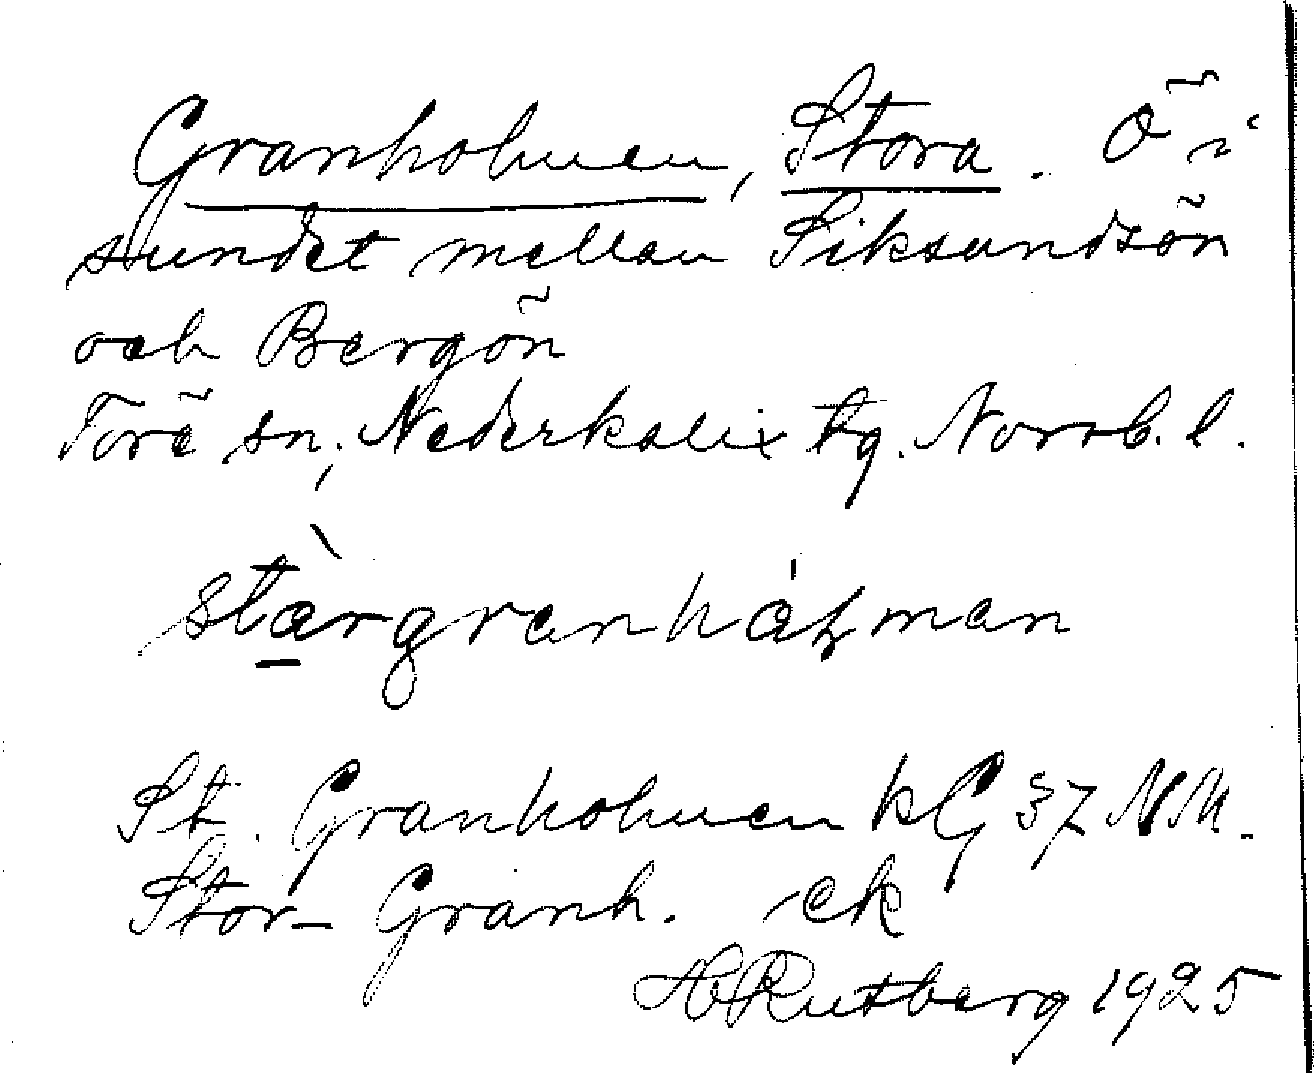 Granholmen, Stora. Ö i
sundet mellan Siksundsön
och Bergön
Töre sn, Nederkalix tg. Norrb. l.
stàrgranhåḷman
St. Granholmen kG 37 NM.
Stor-Granh. ek
H Rutberg 1925